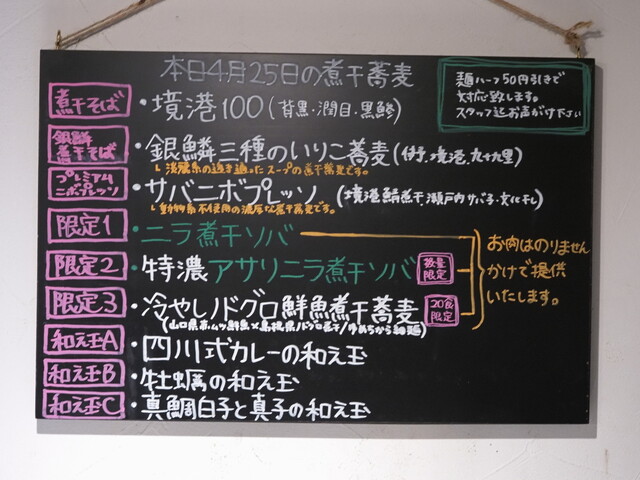 本日4月25日の煮干蕎麦
麺ハーフ50円引きで
対応致します。
スタッフ迄お声がけ下さい
煮干そば ・境港100(背黒・潤目・黒鯵)
銀鱗煮干そば ・銀鱗三種のいりこ蕎麦(伊吹・境港・九十九里)
淡麗系の透き通ったスープの煮干蕎麦です。
プレミアムニボプレッソ ・サバニボプレッソ (境港鯖煮干 瀬戸内サバ子・文化干し)
動物系不使用の濃厚な煮干蕎麦です。
限定1 ・ニラ煮干ソバ
限定2 ・特濃アサリニラ煮干ソバ 数量限定
お肉はのりません
かけで提供
いたします。
限定3 ・冷やしノドグロ鮮魚煮干蕎麦 20食限定
和え玉A ・四川式カレーの和え玉
和え玉B ・牡蠣の和え玉
和え玉C ・真鯛白子と真子の和え玉